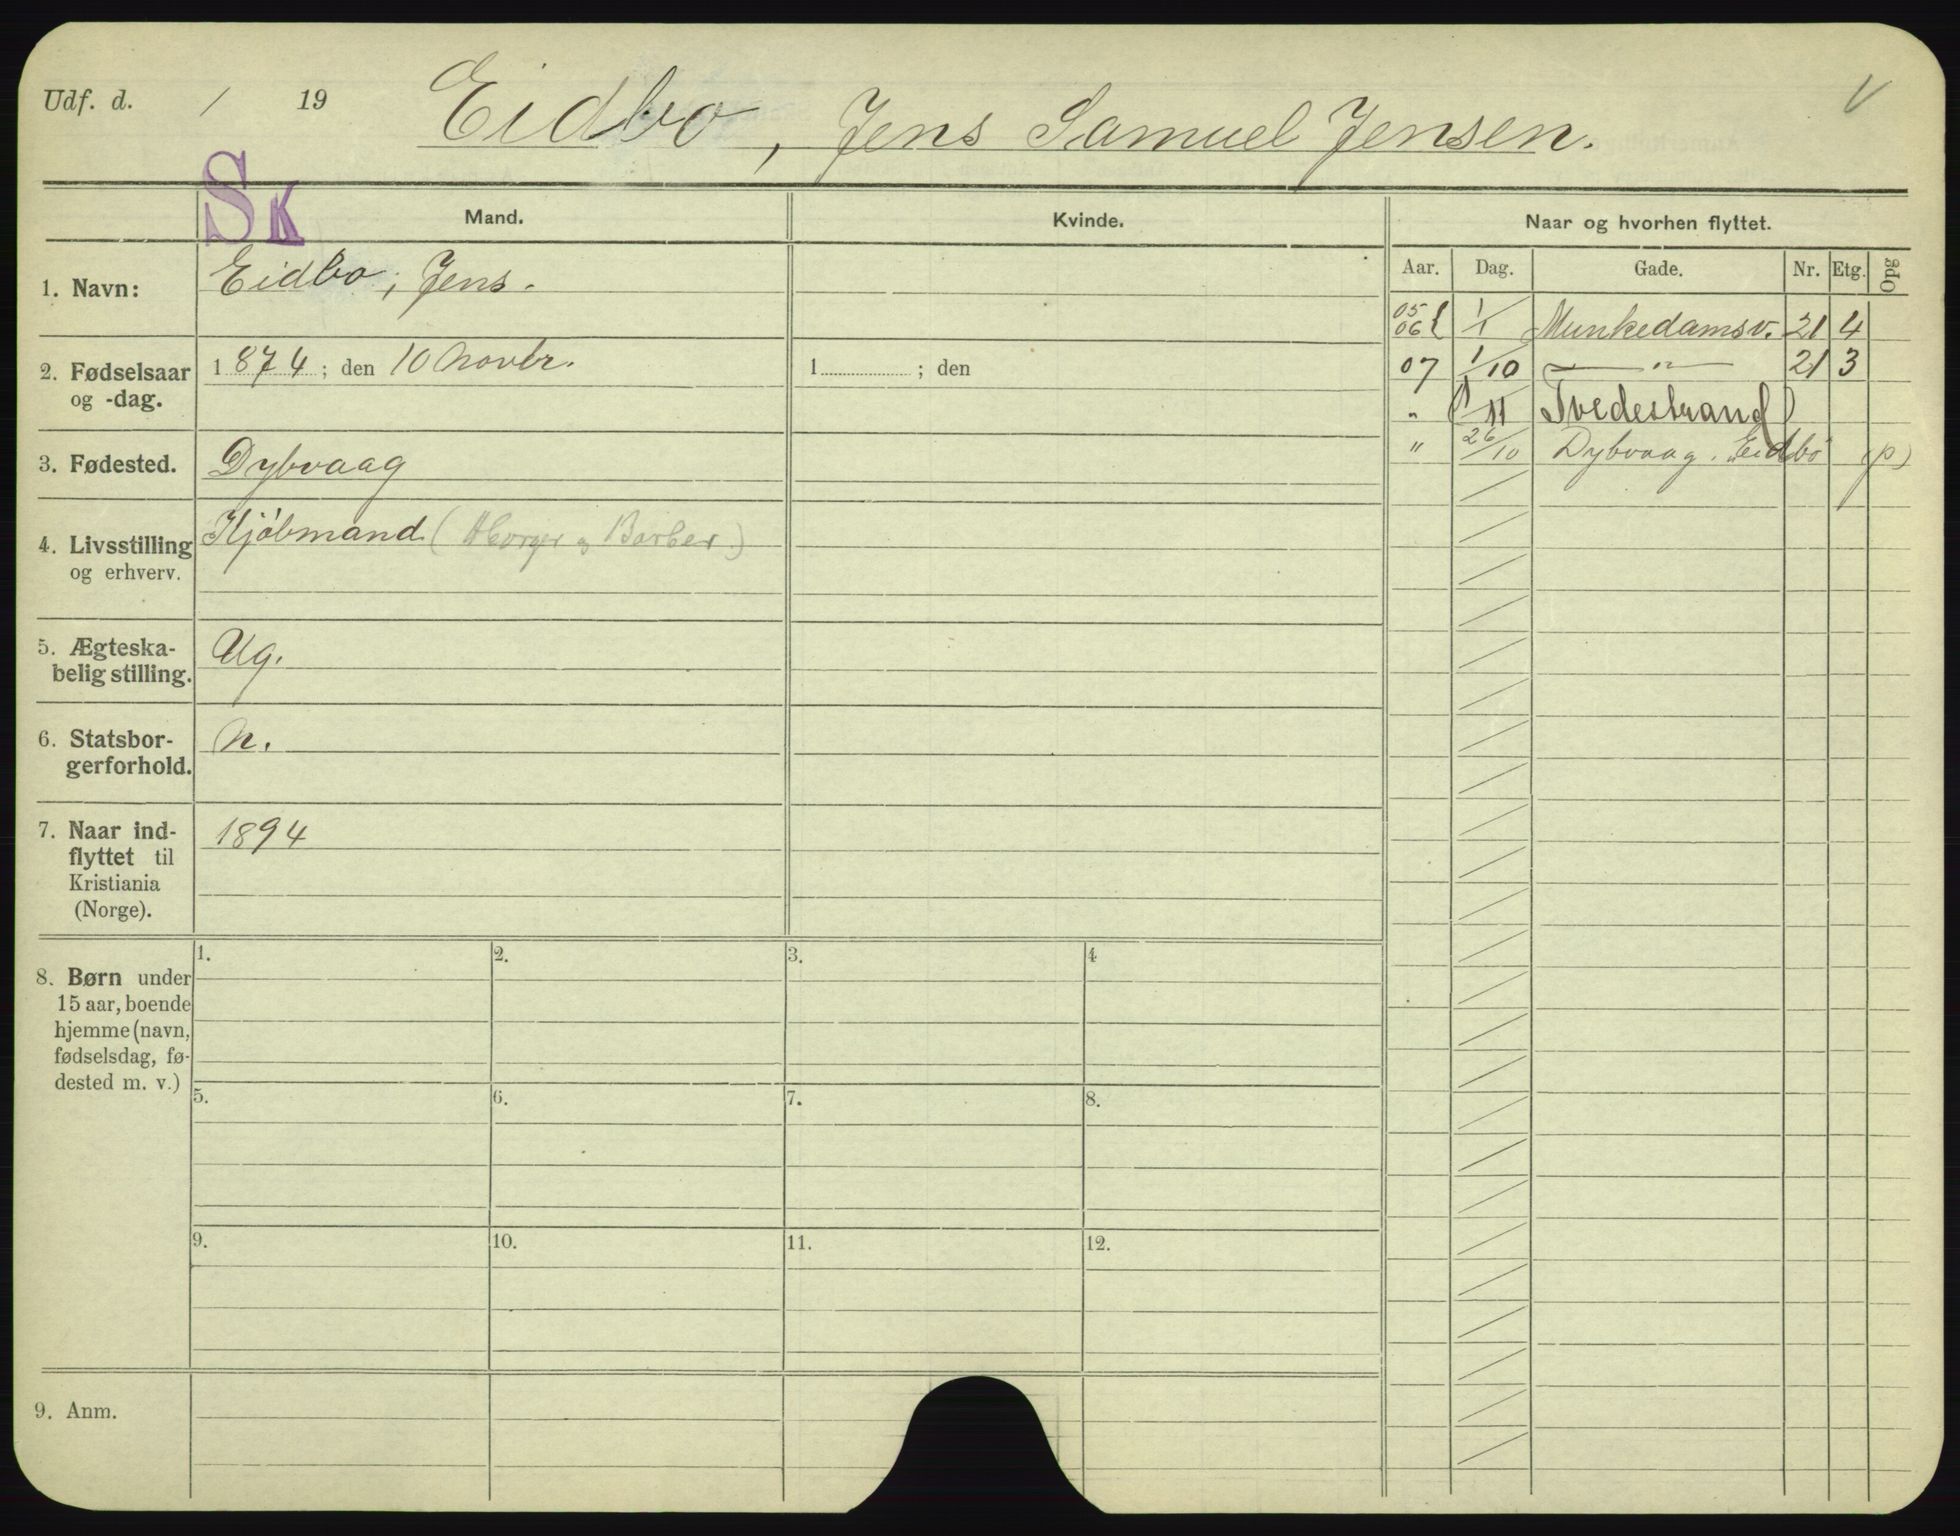 Udf. d. / 19
Eidbo, Jens Samuel Jensen.
V
SK
Mand.
Kvinde.
Naar og hvorhen flyttet.
Aar. Dag. Gade. Nr. Etg. Opg
1. Navn:
Eidbo, Jens.
2. Fødselsaar
og -dag.
1874; den 10 Novbr.
1 ; den
3. Fødested.
Dybvaag
4. Livsstilling
og erhverv.
Kjøbmand ( og Barber)
5. Ægteska-
belig stilling.
Ug.
6. Statsbor-
gerforhold.
N.
7. Naar ind-
flyttet til
Kristiania
(Norge).
1894
05
06 { 1/1 Munkedamsv. 21 4
07 1/10 — " — 21 3
" (1/11 Tvedestrand)
" 26/10 Dybvaag. "Eidbo (p)
8. Børn under
15 aar, boende
hjemme (navn,
fødselsdag, fø-
dested m. v.)
1. 2. 3. 4
5. 6. 7. 8.
9. 10. 11. 12.
9. Anm.